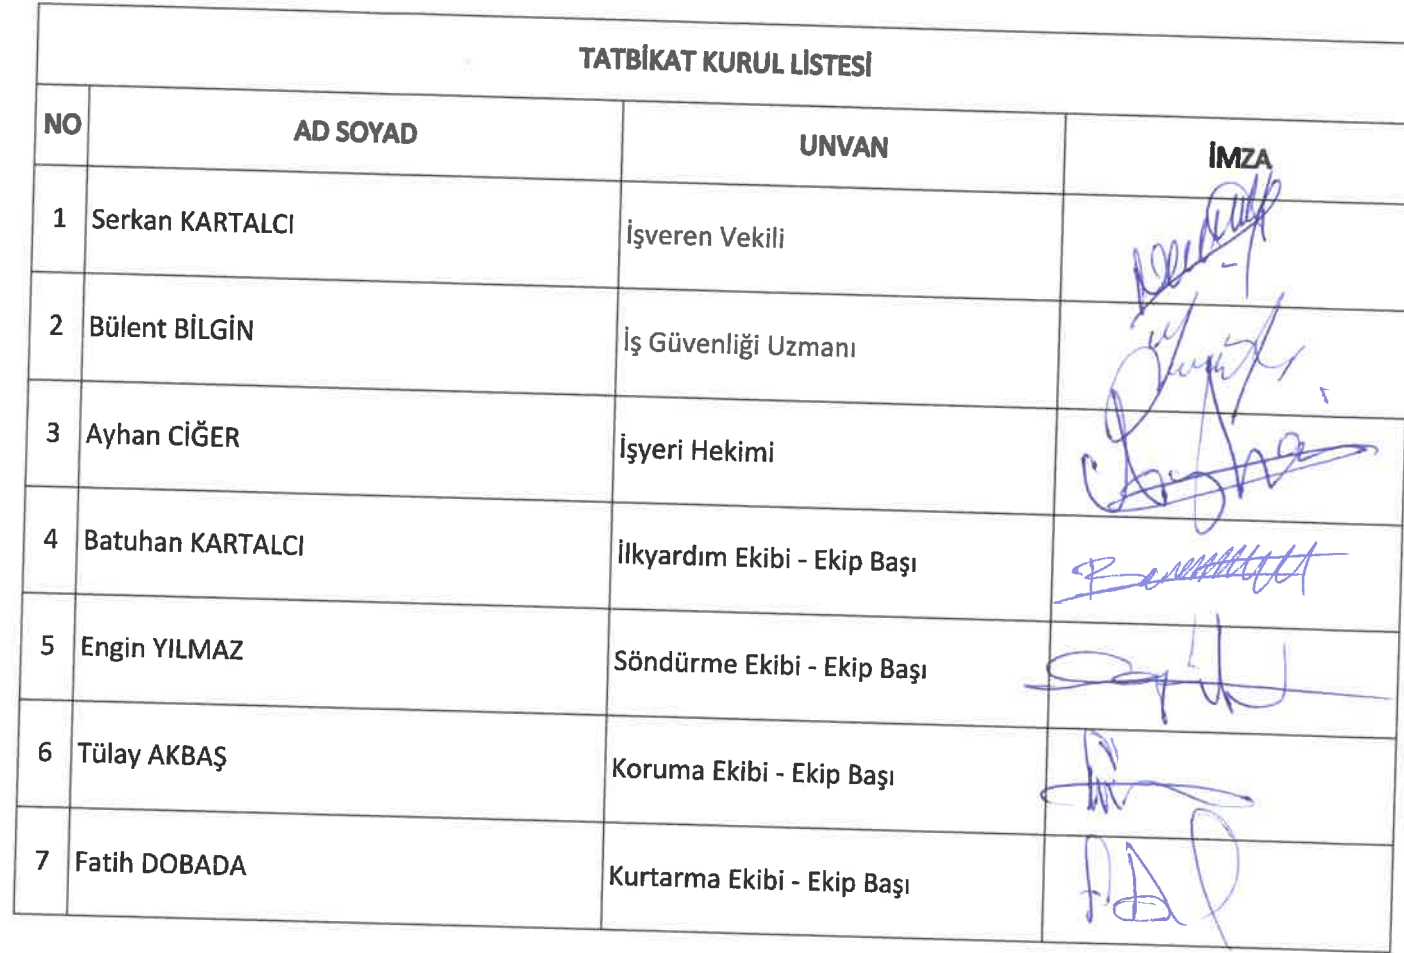 TATBİKAT KURUL LİSTESİ
NO AD SOYAD UNVAN İMZA
1 Serkan KARTALCI İşveren Vekili
2 Bülent BİLGİN İş Güvenliği Uzmanı
3 Ayhan CİĞER İşyeri Hekimi
4 Batuhan KARTALCI İlkyardım Ekibi - Ekip Başı
5 Engin YILMAZ Söndürme Ekibi - Ekip Başı
6 Tülay AKBAŞ Koruma Ekibi - Ekip Başı
7 Fatih DOBADA Kurtarma Ekibi - Ekip Başı